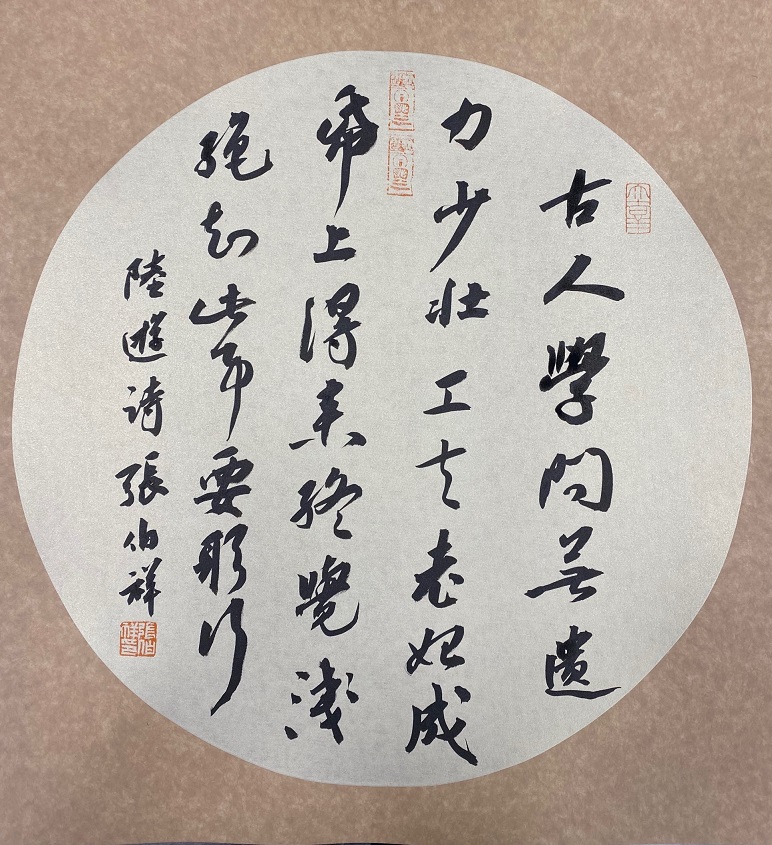 古人學問無遺
力少壯工夫老始成
帋上得来終覺淺
絕知此事要躬行
陸遊詩 張伯祥
張伯祥印